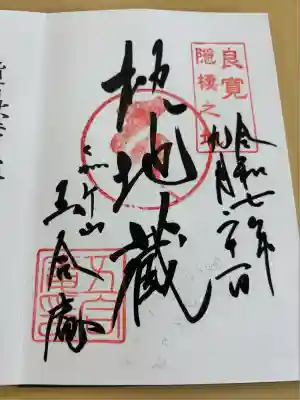 良寛
隠棲之地
令和七年
九月二十一日
枕地蔵
山
五合庵